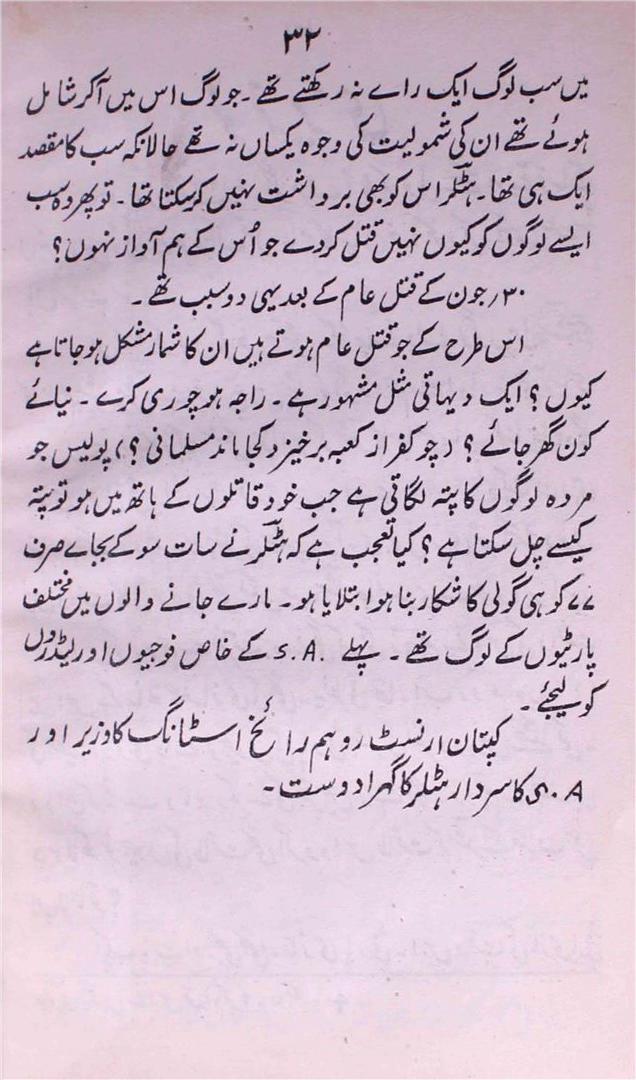 ۳۲
میں سب لوگ ایک رائے نہ رکھتے تھے ۔ جو لوگ اس میں آکر شامل
ہوئے تھے ان کی شمولیت کی وجوہ یکساں نہ تھے حالانکہ سب کا مقصد
ایک ہی تھا ۔ ہٹلر اس کو بھی برداشت نہیں کرسکتا تھا ۔ تو پھر وہ سب
ایسے لوگوں کو کیوں نہیں قتل کردے جو اُس کے ہم آواز نہوں ؟
۳۰ جون کے قتل عام کے بعد یہی دو سبب تھے ۔
اس طرح کے جو قتل عام ہوتے ہیں ان کا شمار مشکل ہوجاتا ہے
کیوں ؟ ایک دیہاتی مثل مشہور ہے ۔ راجہ ہو چوری کرے ۔ نیائے
کون گھر جائے ؟ ( چو کفر از کعبہ برخیزد کجا ماند مسلمانی ؟ ) پولیس جو
مردہ لوگوں کا پتہ لگاتی ہے جب خود قاتلوں کے ہاتھ میں ہو تو پتہ
کیسے چل سکتا ہے ؟ کیا تعجب ہے کہ ہٹلر نے سات سو کے بجائے صرف
۷۷ کو ہی گولی کا شکار بنا ہوا بتلایا ہو ۔ مارے جانے والوں میں مختلف
پارٹیوں کے لوگ تھے ۔ پہلے S.A. کے خاص فوجیوں اور لیڈروں
کو لیجئے ۔
کپتان ارنسٹ روہم رائخ اسٹانگ کا وزیر اور
S.A کا سردار ہٹلر کا گہرا دوست ۔